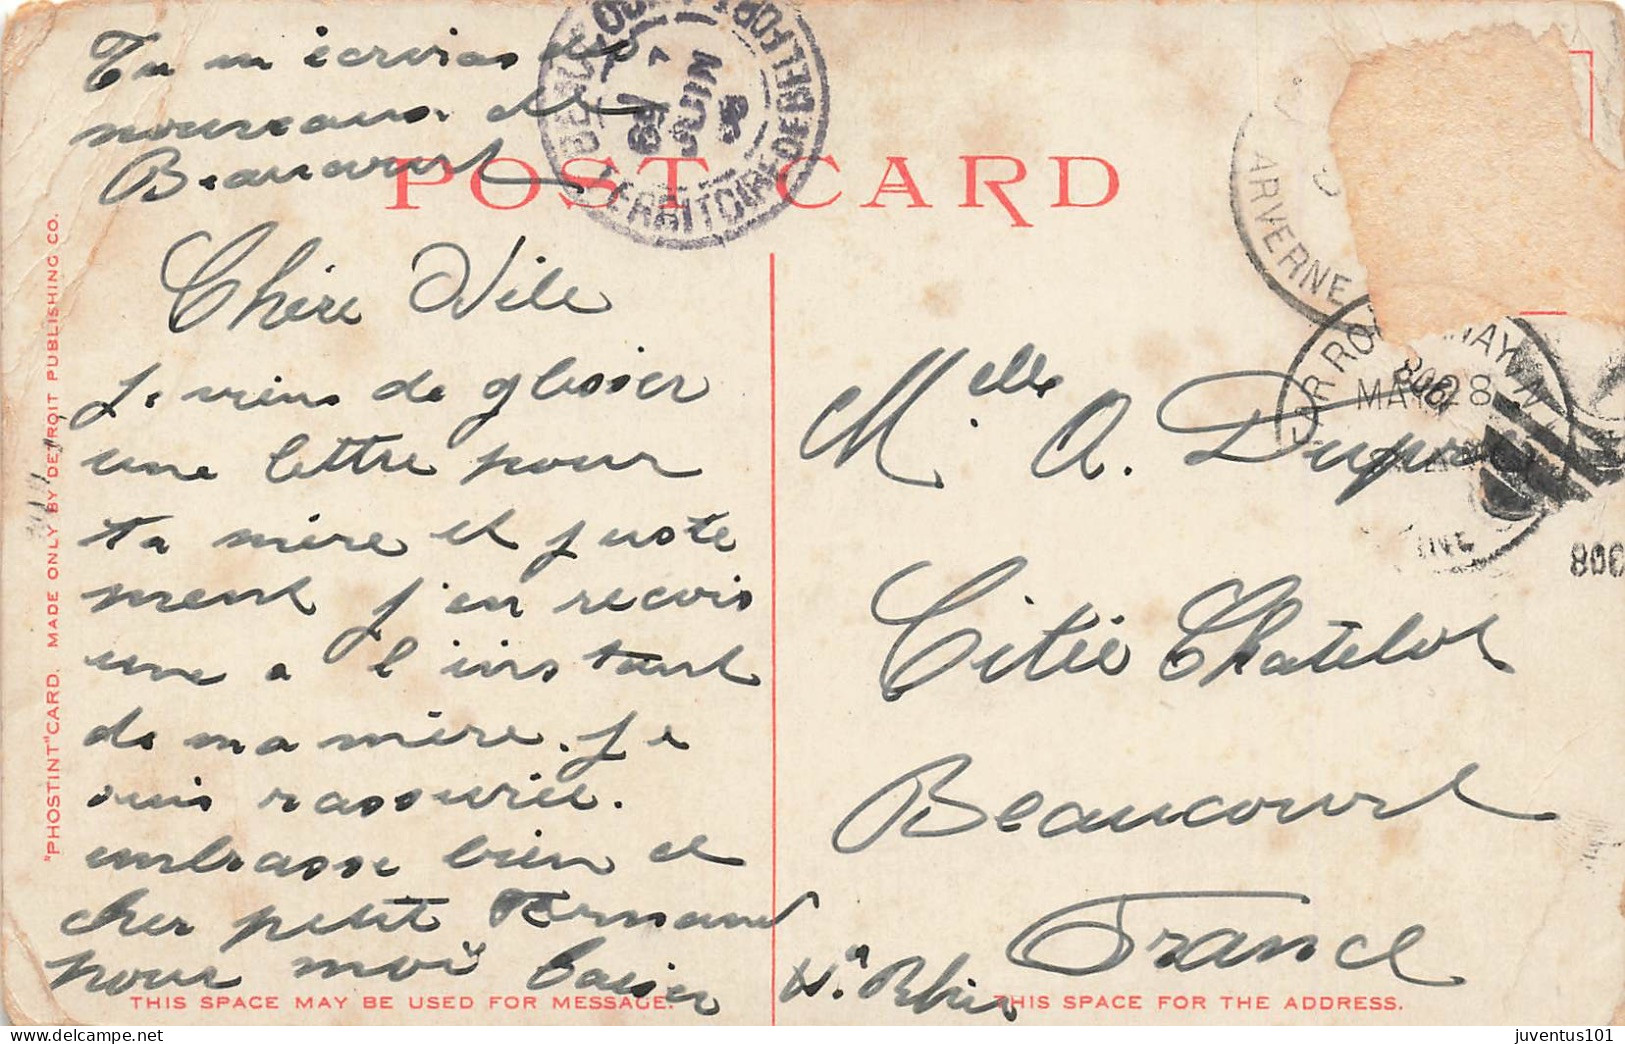 Tu m écrvias des
nouveaux. de
Beaucourt
POST CARD
BELFORT
TERRITOIRE DE BELFORT
ARVERNE
FAR ROCKAWAY N
MAY 28
1908
"PHOSTINT" CARD. MADE ONLY BY DETROIT PUBLISHING CO.
Chère
Je viens de glisser
une lettre pour
ta mère et juste
ment j'en recois
une a l instant
de ma mère. Je
suis rassurée.
embrasse bien le
cher petit Fernand
pour moi baiser
Melle A.
Citée Chatelot
Beaucourt
France
Ht Rhin
THIS SPACE MAY BE USED FOR MESSAGE.
THIS SPACE FOR THE ADDRESS.
www.delcampe.net
juventus101